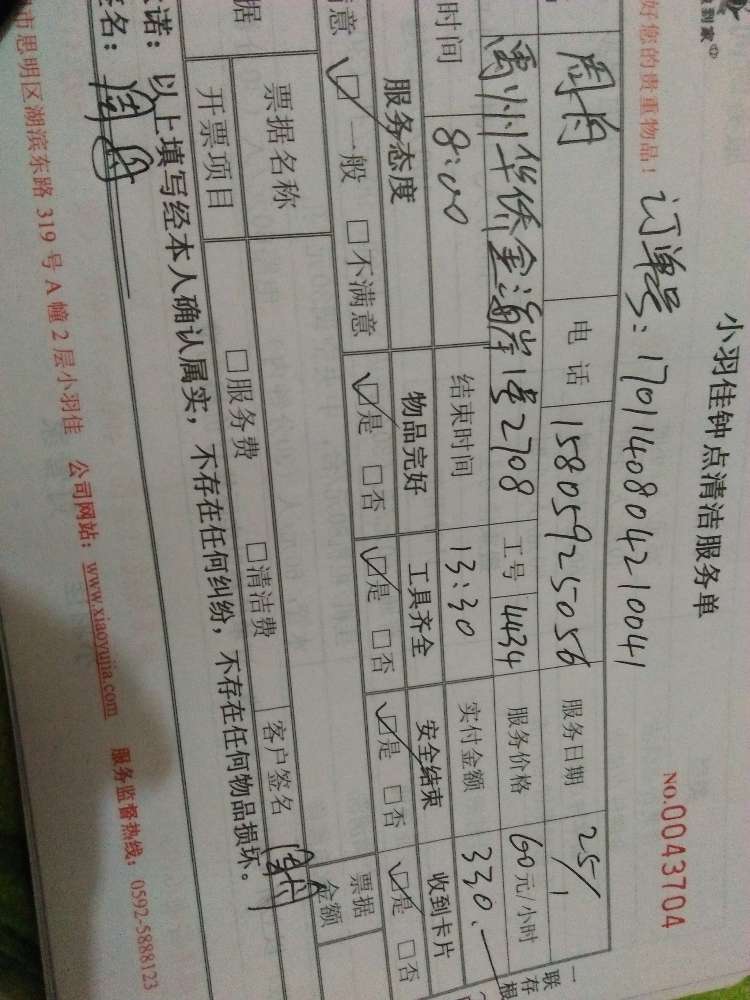 小羽佳钟点清洁服务单
NO.0043704
好您的贵重物品！ 订单号：1701140804210041
周丹 电话 15805925056 服务日期 25/1
禹州华侨金海岸1号2708 工号 4434 服务价格 60元/小时
时间 8:00 结束时间 13:30 实付金额 330.
服务态度 物品完好 工具齐全 安全结束 收到卡片
意 ☑一般 □不满意 ☑是 □否 ☑是 □否 ☑是 □否 ☑是 □否
据 票据名称 票据金额
开票项目 □服务费 □清洁费 客户签名 周丹
诺：以上填写经本人确认属实，不存在任何纠纷，不存在任何物品损坏。
签名：周丹
市思明区湖滨东路 319 号 A 幢 2 层小羽佳 公司网站：www.xiaoyujia.com 服务监督热线：0592-5888123
一联存根